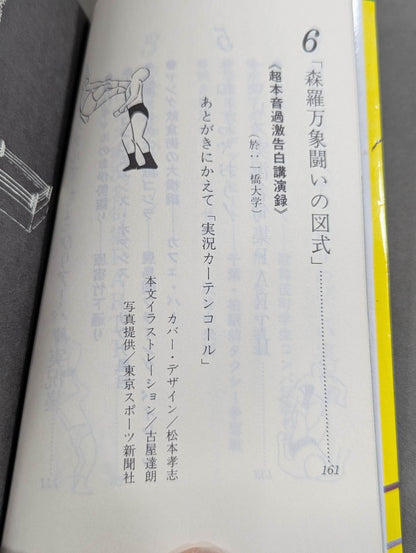 6「森羅万象闘いの図式」……………161
《超本音過激告白講演録》
(於:一橋大学)
あとがきにかえて「実況カーテンコール」
カバー・デザイン/松本孝志
本文イラストレーション/古屋達朗
写真提供/東京スポーツ新聞社